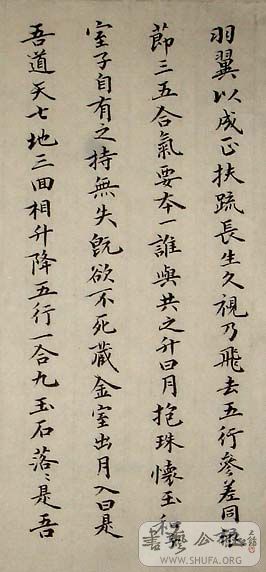 羽翼以成正扶疏長生久視乃飛去五行參差同根
節三五合氣要本一誰與共之升日月抱珠懷玉和
室子自有之持無失既欲不死藏金室出月入日是
吾道天七地三回相升降五行一合九玉石落〻是吾
書藝公社
WWW.SHUFA.ORG